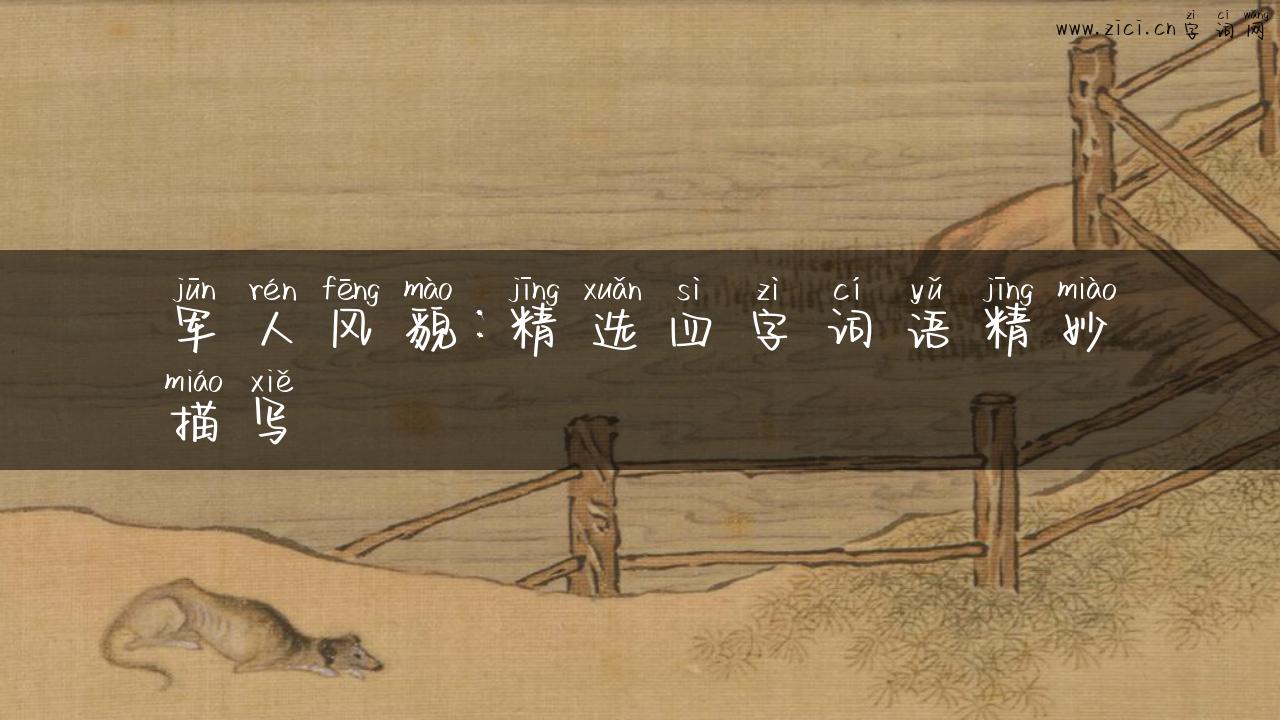 zì cí wǎng
www.zici.cn 字词网
jūn rén fēng mào jīng xuǎn sì zì cí yǔ jīng miào
军人风貌：精选四字词语精妙
miáo xiě
描写